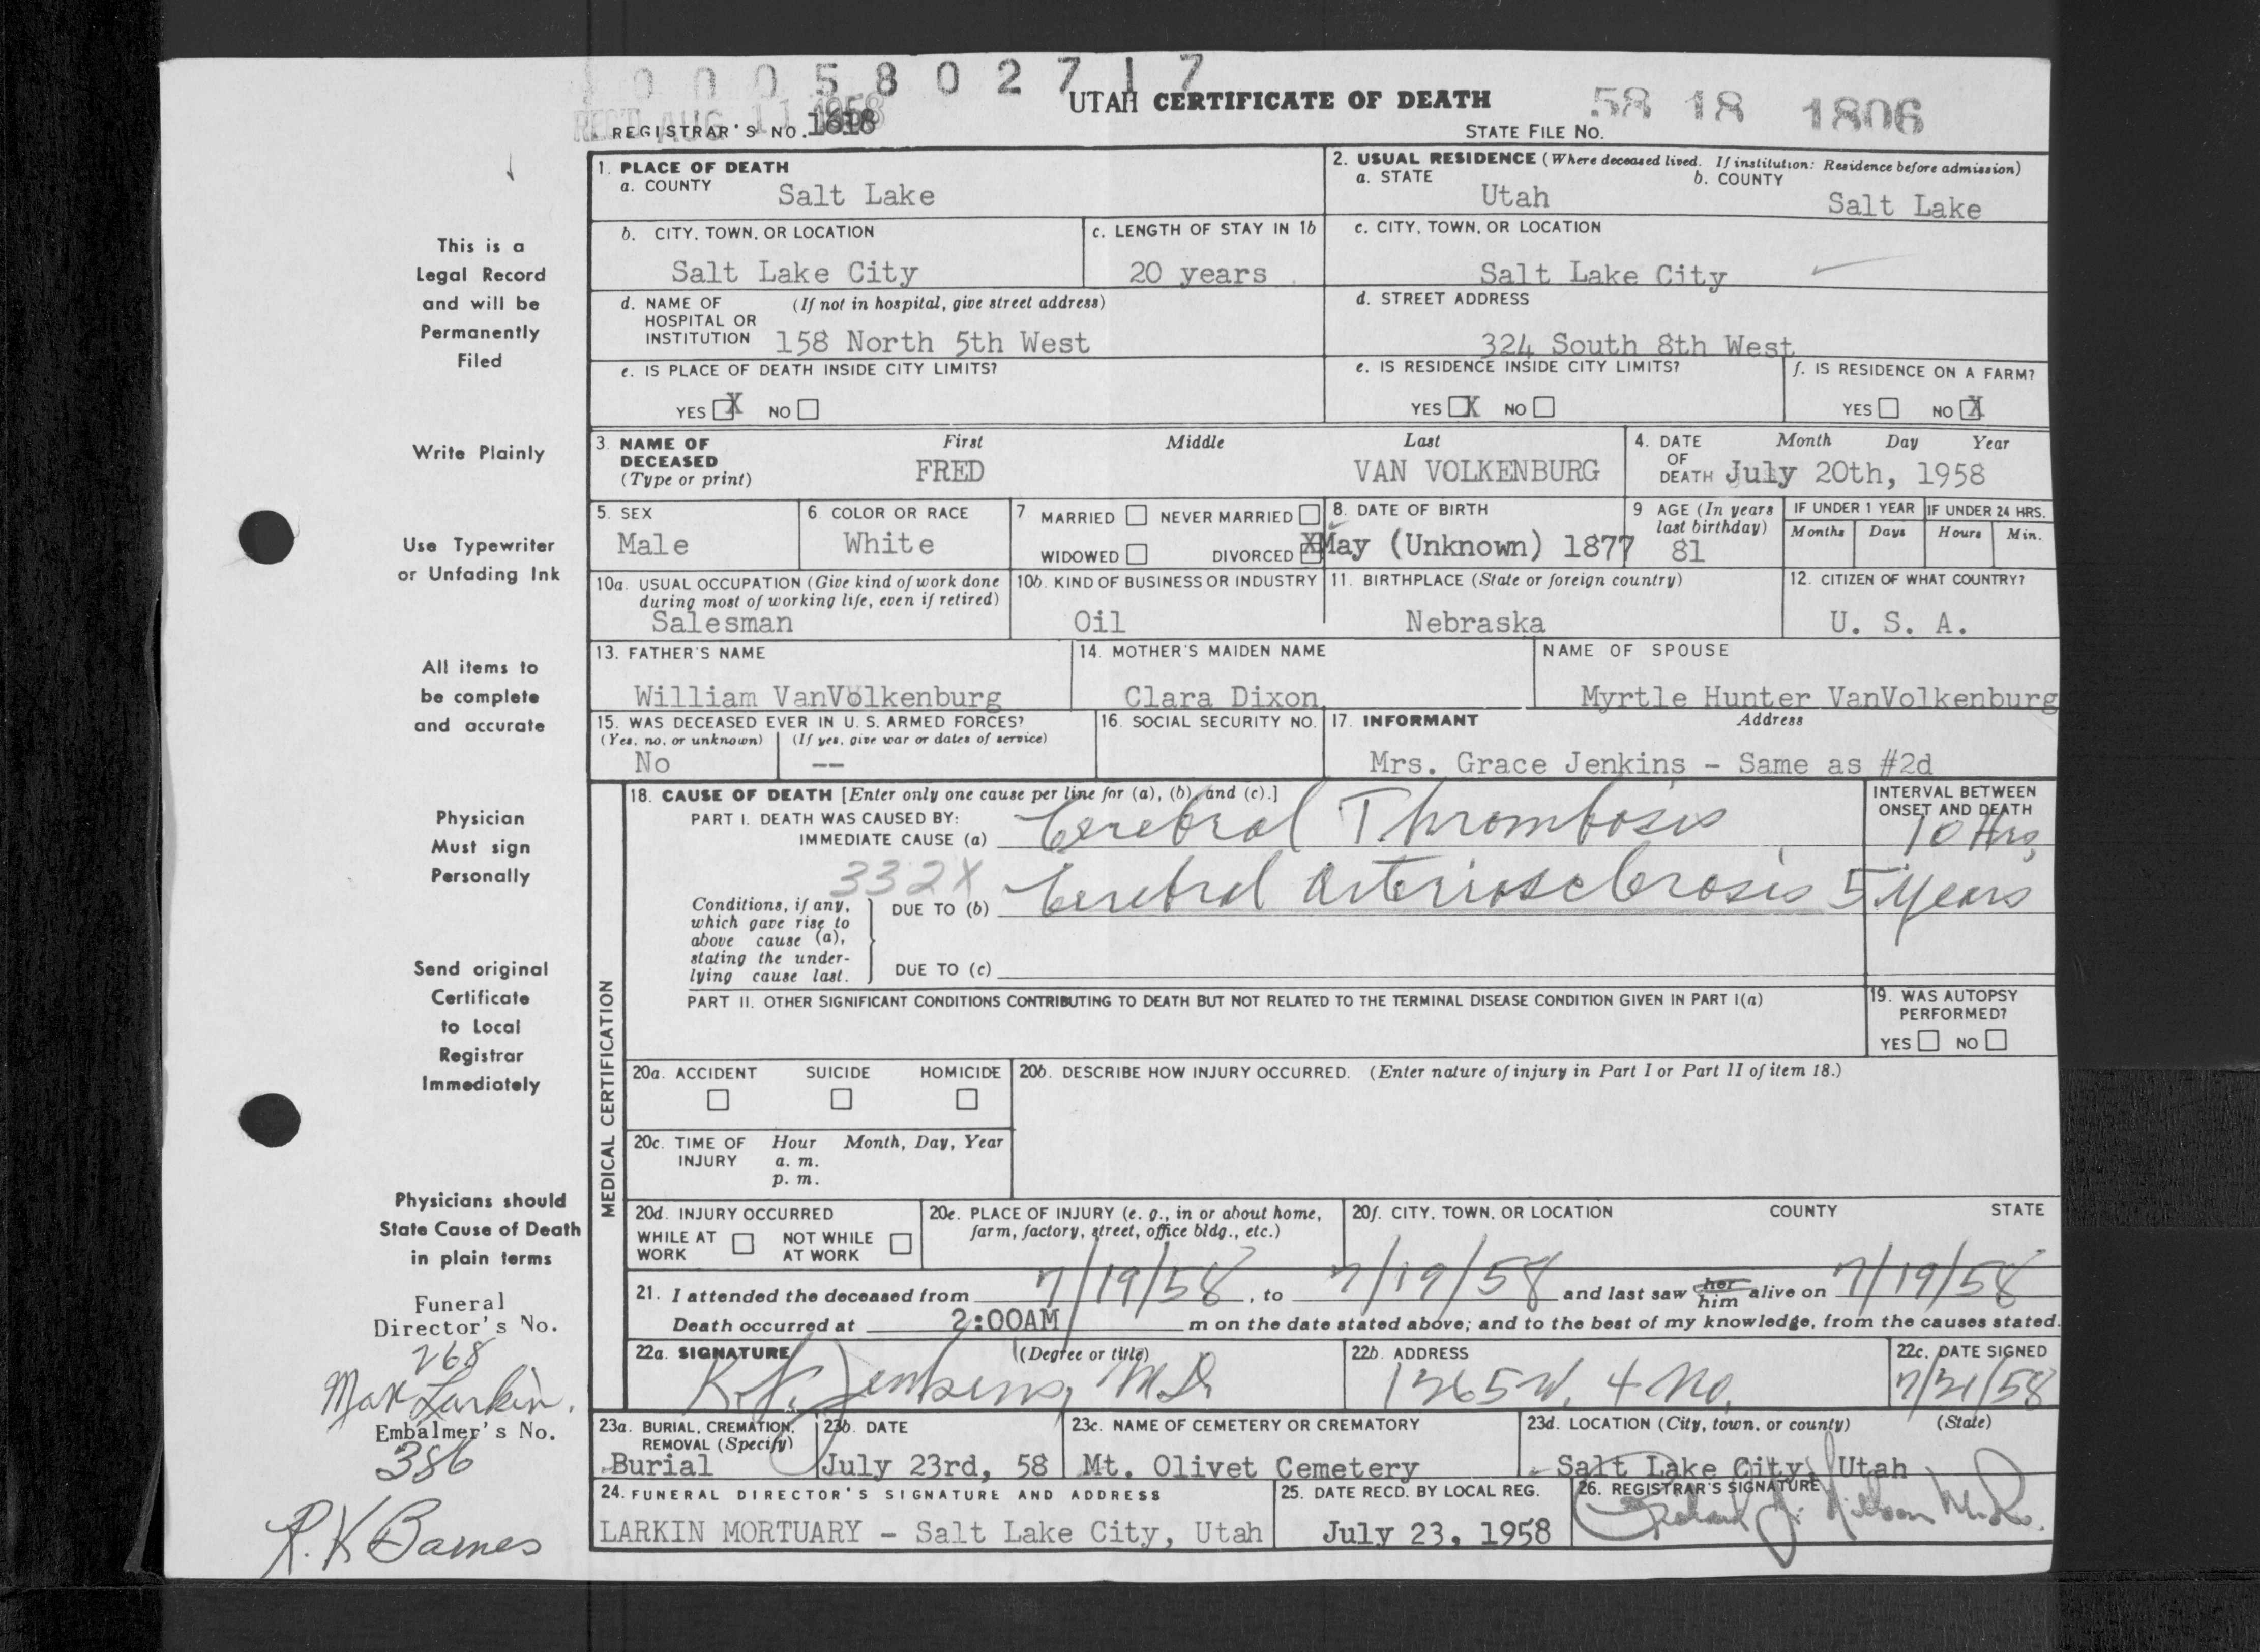 0 0 0 5 8 0 2 7 1 7
REC'D AUG 11 1958
UTAH CERTIFICATE OF DEATH
58 18 1806
REGISTRAR'S NO. 1618
STATE FILE NO.
1. PLACE OF DEATH
a. COUNTY Salt Lake
2. USUAL RESIDENCE (Where deceased lived. If institution: Residence before admission)
a. STATE Utah b. COUNTY Salt Lake
b. CITY, TOWN, OR LOCATION Salt Lake City
c. LENGTH OF STAY IN 1b 20 years
c. CITY, TOWN, OR LOCATION Salt Lake City
d. NAME OF HOSPITAL OR INSTITUTION (If not in hospital, give street address) 158 North 5th West
d. STREET ADDRESS 324 South 8th West
e. IS PLACE OF DEATH INSIDE CITY LIMITS?
YES X NO
e. IS RESIDENCE INSIDE CITY LIMITS?
YES X NO
f. IS RESIDENCE ON A FARM?
YES NO X
3. NAME OF DECEASED (Type or print)
First Middle Last
FRED VAN VOLKENBURG
4. DATE OF DEATH Month Day Year
July 20th, 1958
5. SEX Male
6 COLOR OR RACE White
7 MARRIED NEVER MARRIED
WIDOWED DIVORCED X
8. DATE OF BIRTH May (Unknown) 1877
9 AGE (In years last birthday) 81
IF UNDER 1 YEAR Months Days
IF UNDER 24 HRS. Hours Min.
10a. USUAL OCCUPATION (Give kind of work done during most of working life, even if retired)
Salesman
10b. KIND OF BUSINESS OR INDUSTRY
Oil
11. BIRTHPLACE (State or foreign country)
Nebraska
12. CITIZEN OF WHAT COUNTRY?
U. S. A.
13. FATHER'S NAME
William VanVolkenburg
14. MOTHER'S MAIDEN NAME
Clara Dixon
NAME OF SPOUSE
Myrtle Hunter VanVolkenburg
15. WAS DECEASED EVER IN U. S. ARMED FORCES?
(Yes, no, or unknown) (If yes, give war or dates of service)
No --
16. SOCIAL SECURITY NO.
17. INFORMANT Address
Mrs. Grace Jenkins - Same as #2d
MEDICAL CERTIFICATION
18. CAUSE OF DEATH [Enter only one cause per line for (a), (b), and (c).]
PART I. DEATH WAS CAUSED BY:
IMMEDIATE CAUSE (a) Cerebral Thrombosis
INTERVAL BETWEEN ONSET AND DEATH
10 Hrs,
332X
Conditions, if any, which gave rise to above cause (a), stating the underlying cause last.
DUE TO (b) Cerebral Arteriosclerosis 5 years
DUE TO (c)
PART II. OTHER SIGNIFICANT CONDITIONS CONTRIBUTING TO DEATH BUT NOT RELATED TO THE TERMINAL DISEASE CONDITION GIVEN IN PART I(a)
19. WAS AUTOPSY PERFORMED?
YES NO
20a. ACCIDENT SUICIDE HOMICIDE
20b. DESCRIBE HOW INJURY OCCURRED. (Enter nature of injury in Part I or Part II of item 18.)
20c. TIME OF INJURY Hour a. m. p. m. Month, Day, Year
20d. INJURY OCCURRED
WHILE AT WORK NOT WHILE AT WORK
20e. PLACE OF INJURY (e. g., in or about home, farm, factory, street, office bldg., etc.)
20f. CITY, TOWN, OR LOCATION COUNTY STATE
21. I attended the deceased from 7/19/58, to 7/19/58 and last saw her him alive on 7/19/58
Death occurred at 2:00AM m on the date stated above; and to the best of my knowledge, from the causes stated.
22a. SIGNATURE (Degree or title)
Jenkins, MD
22b. ADDRESS
1365 W. 4 No.
22c. DATE SIGNED
7/21/58
23a. BURIAL, CREMATION, REMOVAL (Specify)
Burial
23b. DATE
July 23rd, 58
23c. NAME OF CEMETERY OR CREMATORY
Mt. Olivet Cemetery
23d. LOCATION (City, town, or county) (State)
Salt Lake City, Utah
24. FUNERAL DIRECTOR'S SIGNATURE AND ADDRESS
LARKIN MORTUARY - Salt Lake City, Utah
25. DATE RECD. BY LOCAL REG.
July 23, 1958
26. REGISTRAR'S SIGNATURE
This is a
Legal Record
and will be
Permanently
Filed
Write Plainly
Use Typewriter
or Unfading Ink
All items to
be complete
and accurate
Physician
Must sign
Personally
Send original
Certificate
to Local
Registrar
Immediately
Physicians should
State Cause of Death
in plain terms
Funeral
Director's No.
268
Max Larkin.
Embalmer's No.
386
R. K Barnes